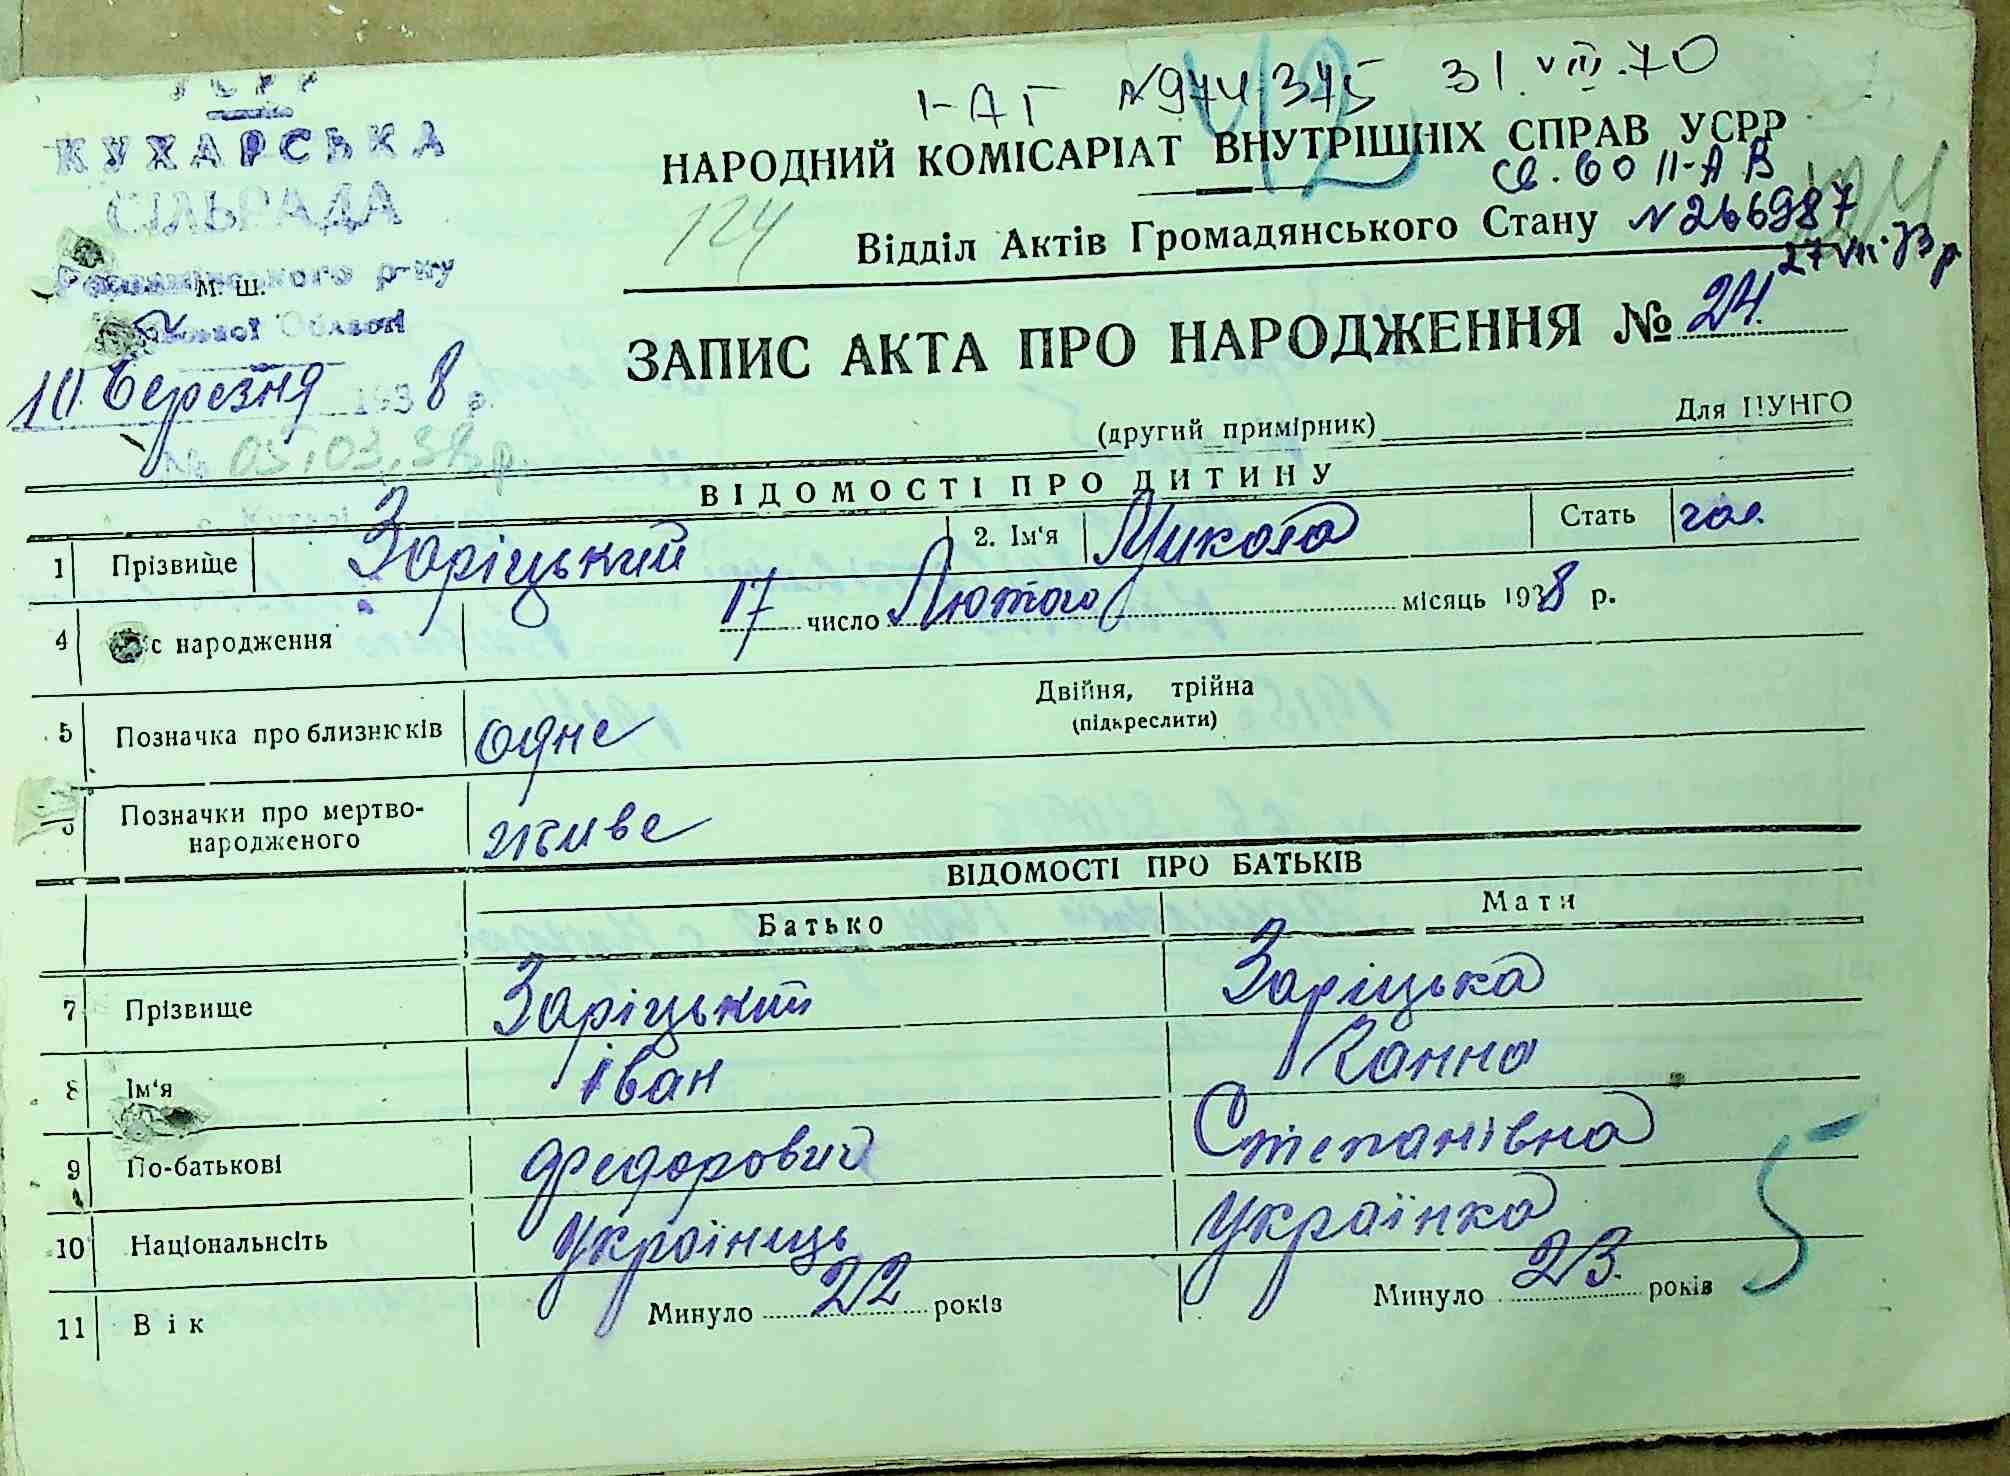 УСРР
КУХАРСЬКА
СІЛЬРАДА
р-ну
М. Ш.
Області
10 березня 1938 р.
№ 05.03.38 р.
І-АГ №974375 31.VIII.70
42
НАРОДНИЙ КОМІСАРІАТ ВНУТРІШНІХ СПРАВ УСРР
св. 60 ІІ-АВ
124
Відділ Актів Громадянського Стану №266987
27 VII.73 р
ЗАПИС АКТА ПРО НАРОДЖЕННЯ № 24.
(другий примірник) Для ЦУНГО
ВІДОМОСТІ ПРО ДИТИНУ
1 Прізвище Заріцький 2. Ім'я Микола Стать чол.
4 с народження 17 число Лютого місяць 1938 р.
5 Позначка про близнюків одне Двійня, трійна
(підкреслити)
Позначки про мертво-
народженого живе
ВІДОМОСТІ ПРО БАТЬКІВ
Батько Мати
7 Прізвище Заріцький Заріцька
8 Ім'я Іван Ганна
9 По-батькові Федорович Степанівна
10 Національнсіть Українець Українка
5
11 Вік Минуло 22 років Минуло 23 років